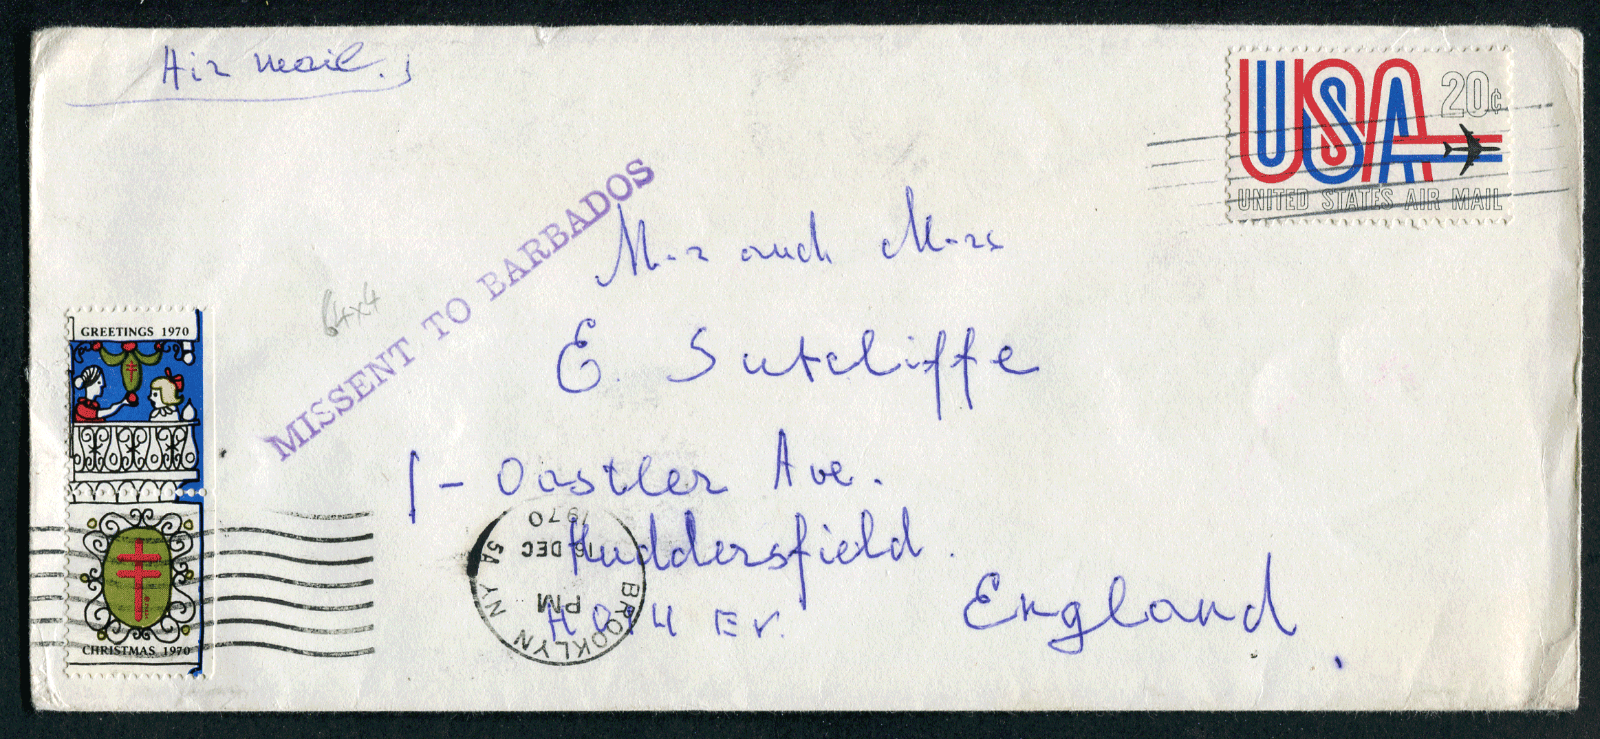 Air mail.
USA 20¢
UNITED STATES AIR MAIL
MISSENT TO BARBADOS
Mr and Mrs
E. Sutcliffe
1 - Oastler Ave.
Huddersfield.
England
64x4
GREETINGS 1970
CHRISTMAS 1970
BROOKLYN NY
5A
PM
16 DEC
1970